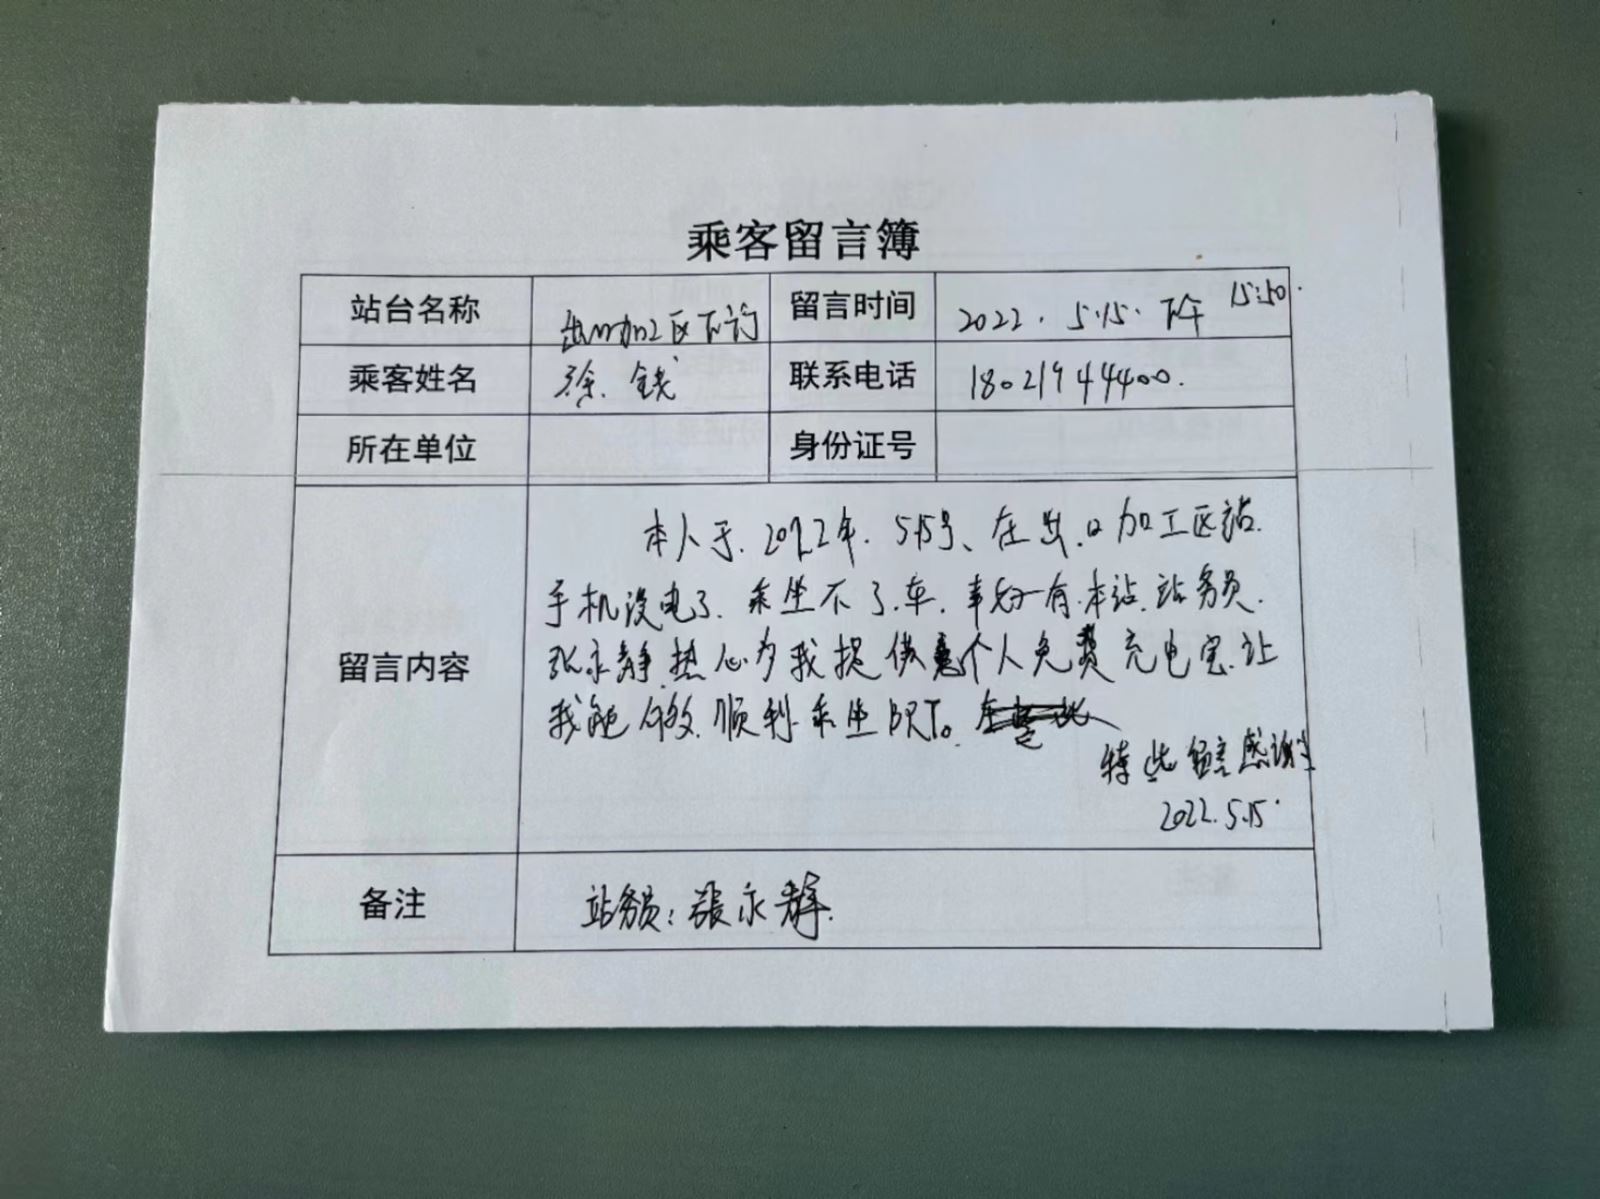 乘客留言簿
站台名称 出口加工区下行 留言时间 2022.5.15.下午 15:50.
乘客姓名 徐钱 联系电话 18021944400.
所在单位 身份证号
本人于.2022年.5.15号、在出.口加工区站.
手机没电了.乘坐不了.车.幸好有.本站.站务员.
留言内容 张永静.热心为我提供个人免费充电宝.让
我能够.顺利.乘坐BRT。
特此留言感谢
2022.5.15.
备注 站务员：张永静.